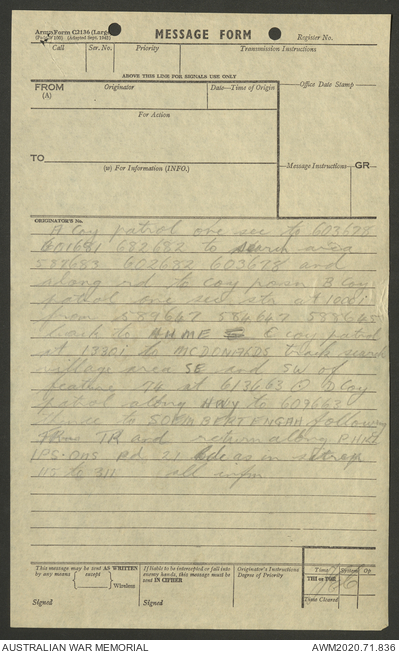 Army Form C2136 (Large)
MESSAGE FORM
Register No.
Call
Ser. No.
Priority
Transmission Instructions
ABOVE THIS LINE FOR SIGNALS USE ONLY
FROM
(A)
Originator
Date—Time of Origin
Office Date Stamp
For Action
TO
(w) For Information (INFO.)
Message Instructions
GR
ORIGINATOR'S No.
A Coy patrol one sec to 603678
601681 682682 to search area
587683 602682 603678 and
along rd to coy posn B Coy
patrol one sec at 1000i
from 589647 584647
back to HOME C coy patrol
at 1330i to MCDONALDS track search
village area SE and SW of
feature 74 at 613663 D Coy
patrol along HWY to 609662
thence to SOEMBERTENGAH following
TR and return along
Rd 27 as in
115 to 311 all infm
This message may be sent AS WRITTEN
by any means
except
Wireless
If liable to be intercepted or fall into
enemy hands, this message must be
sent IN CIPHER
Originator's Instructions
Degree of Priority
Time
System
Op
THI or TOR
Time Cleared
Signed
Signed
AUSTRALIAN WAR MEMORIAL
AWM2020.71.836